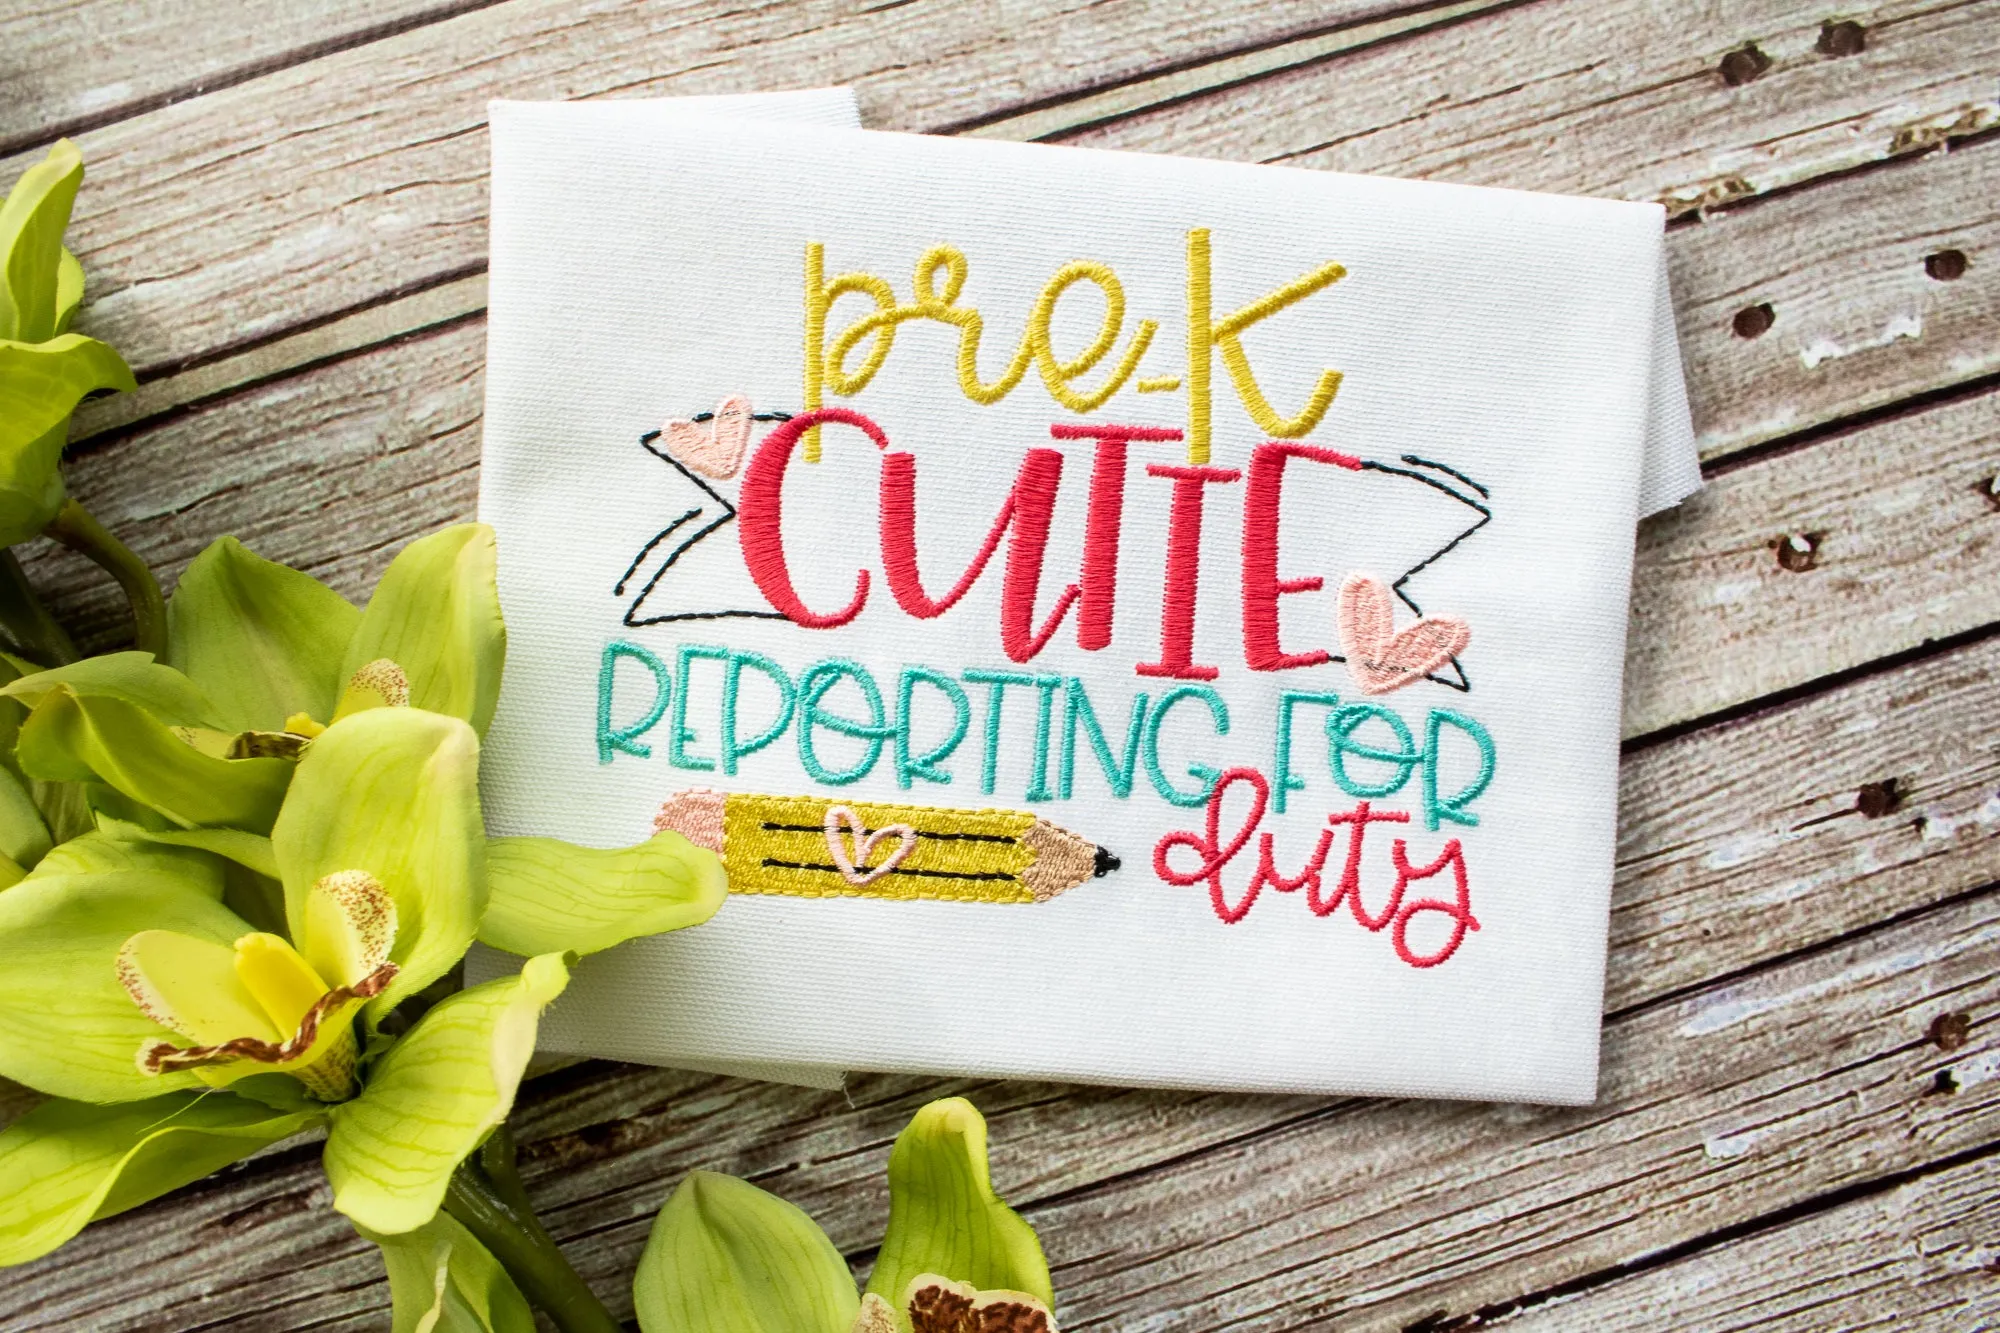 pre-K
CUTIE
REPORTING FOR
duty